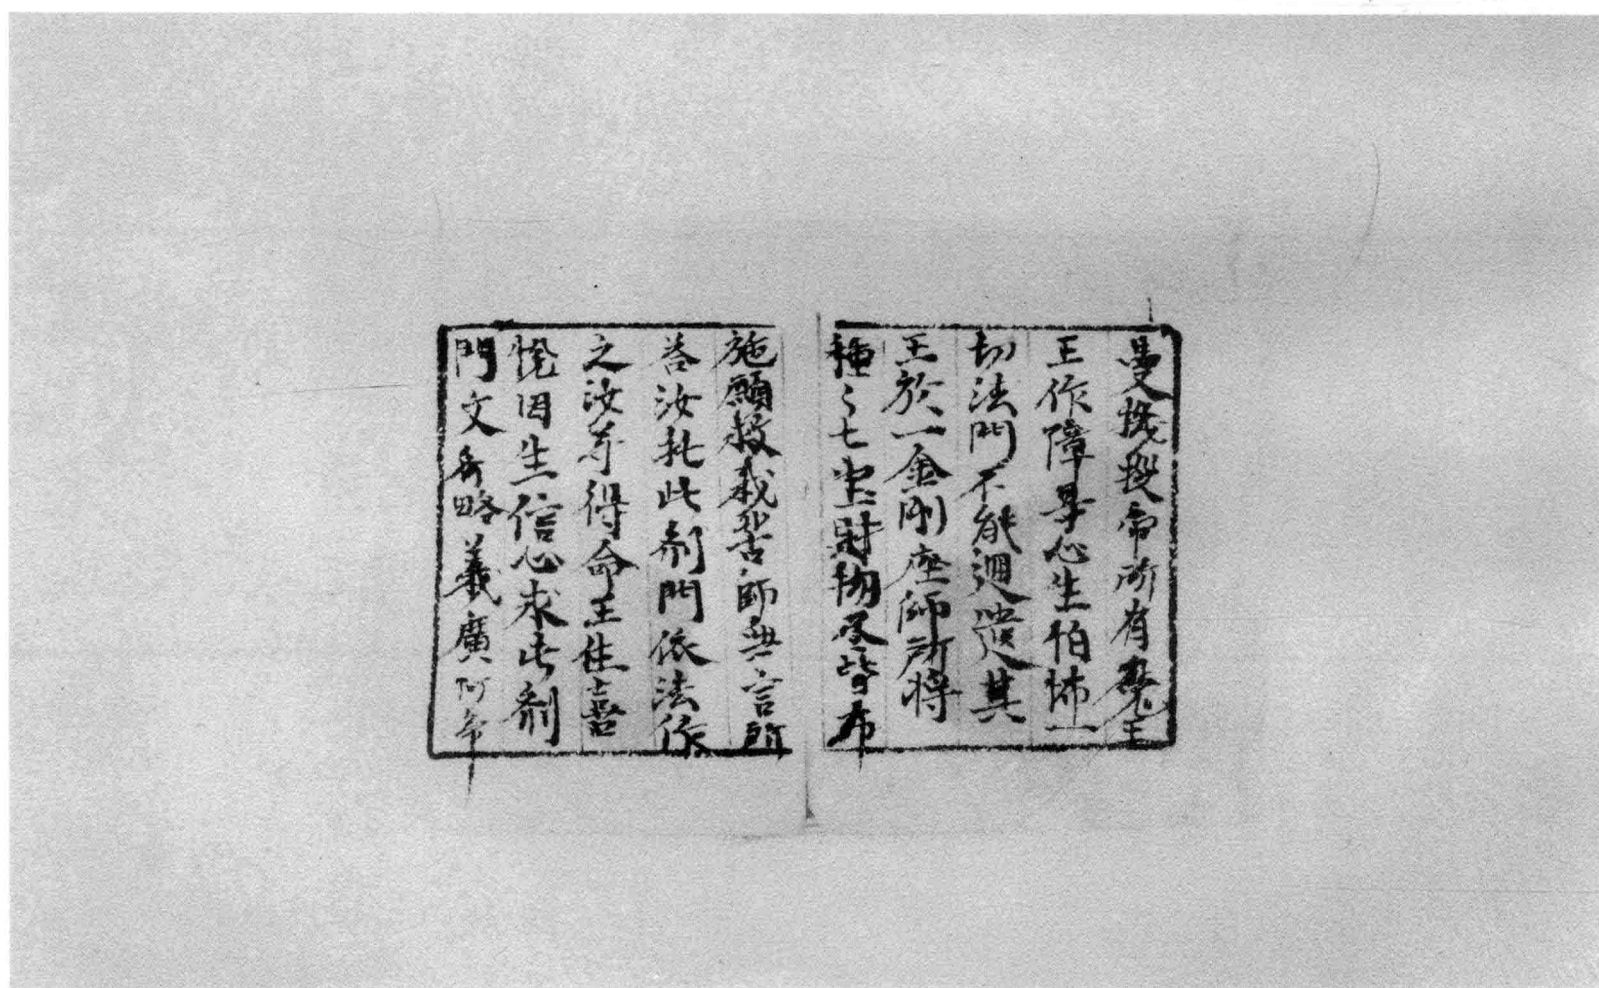 曼擾擾帝所有魔王
王作障㝵心生怕怖一
切法門不能迴遣其
王於一金剛座師所將
種〻七寶財物尽皆布
施願救我苦師無言所
荅汝扥此剎門依法作
之汝㝵得命王性喜
悅因生信心求此剎
門文略義廣